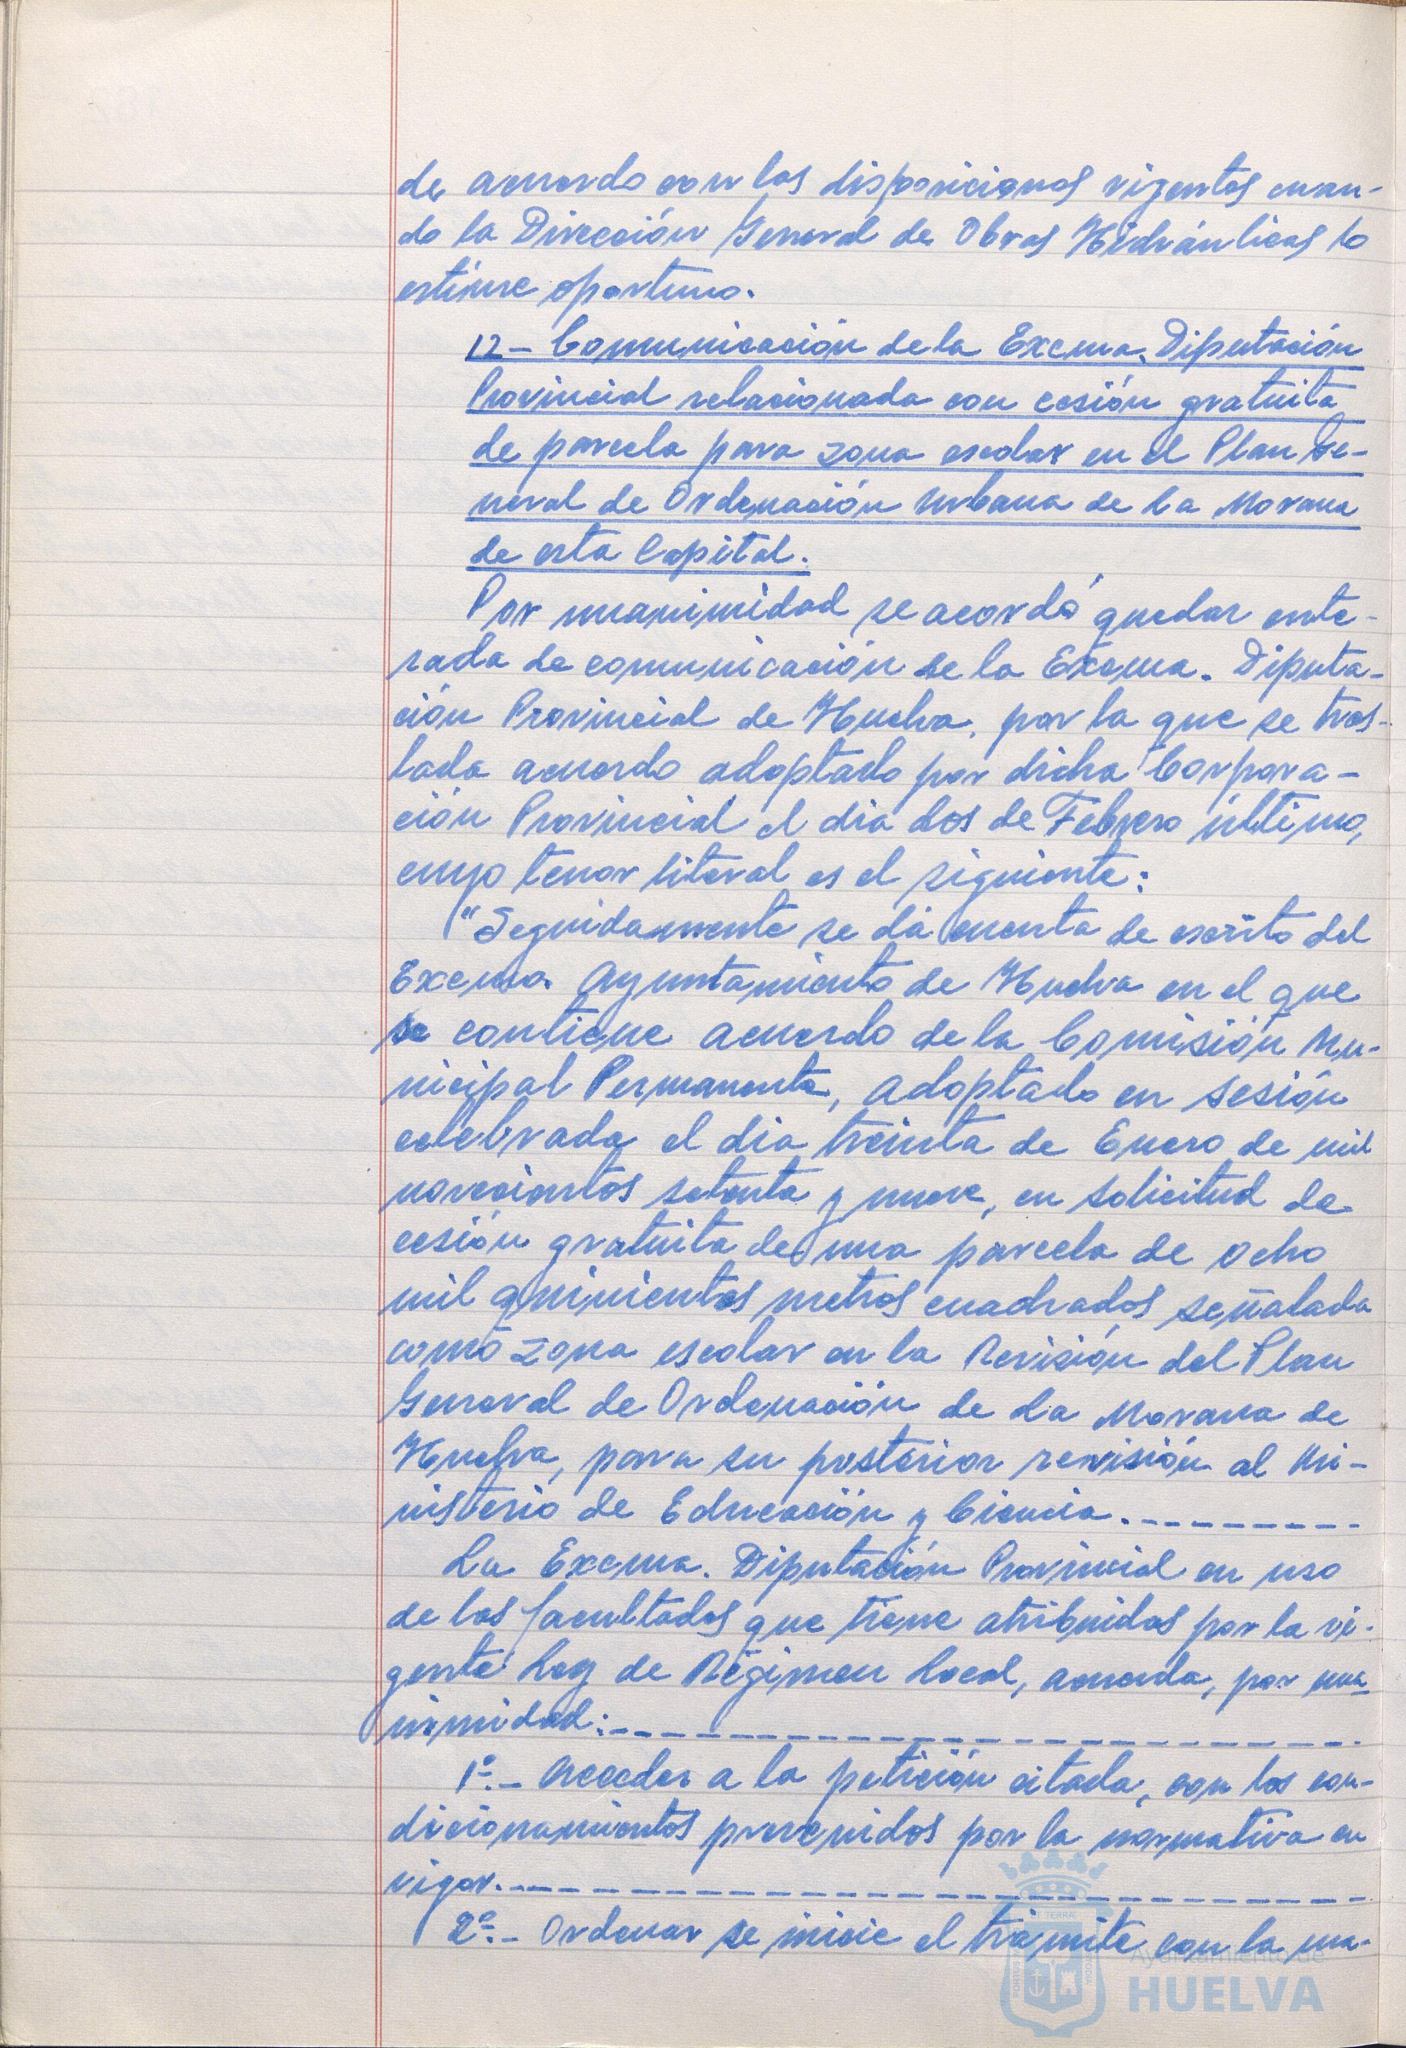 de acuerdo con las disposiciones vigentes cuan-
do la Dirección General de Obras Hidráulicas lo
estime oportuno.
12 - Comunicación de la Excma. Diputación
Provincial relacionada con cesión gratuita
de parcela para zona escolar en el Plan Ge-
neral de Ordenación Urbana de La Morana
de esta Capital.
Por unanimidad se acordó quedar ente-
rada de comunicación de la Excma. Diputa-
ción Provincial de Huelva, por la que se tras-
lada acuerdo adoptado por dicha Corpora-
ción Provincial el dia dos de Febrero último,
cuyo tenor literal es el siguiente:
"Seguidamente se dá cuenta de escrito del
Excmo. Ayuntamiento de Huelva en el que
se contiene acuerdo de la Comisión Mu-
nicipal Permanente, adoptado en sesión
celebrada el dia treinta de Enero de mil
novecientos setenta y nueve, en solicitud de
cesión gratuita de una parcela de ocho
mil quinientos metros cuadrados señalada
como zona escolar en la Revisión del Plan
General de Ordenación de La Morana de
Huelva, para su posterior revisión al Mi-
nisterio de Educación y Ciencia.
La Excma. Diputación Provincial en uso
de las facultades que tiene atribuidas por la vi-
gente Ley de Régimen Local, acuerda, por una
nimidad:
1º.- Acceder a la petición citada, con los con-
dicionamientos prevenidos por la normativa en
vigor.
2º.- Ordenar se inicie el trámite con la ma-
Ayuntamiento de
HUELVA